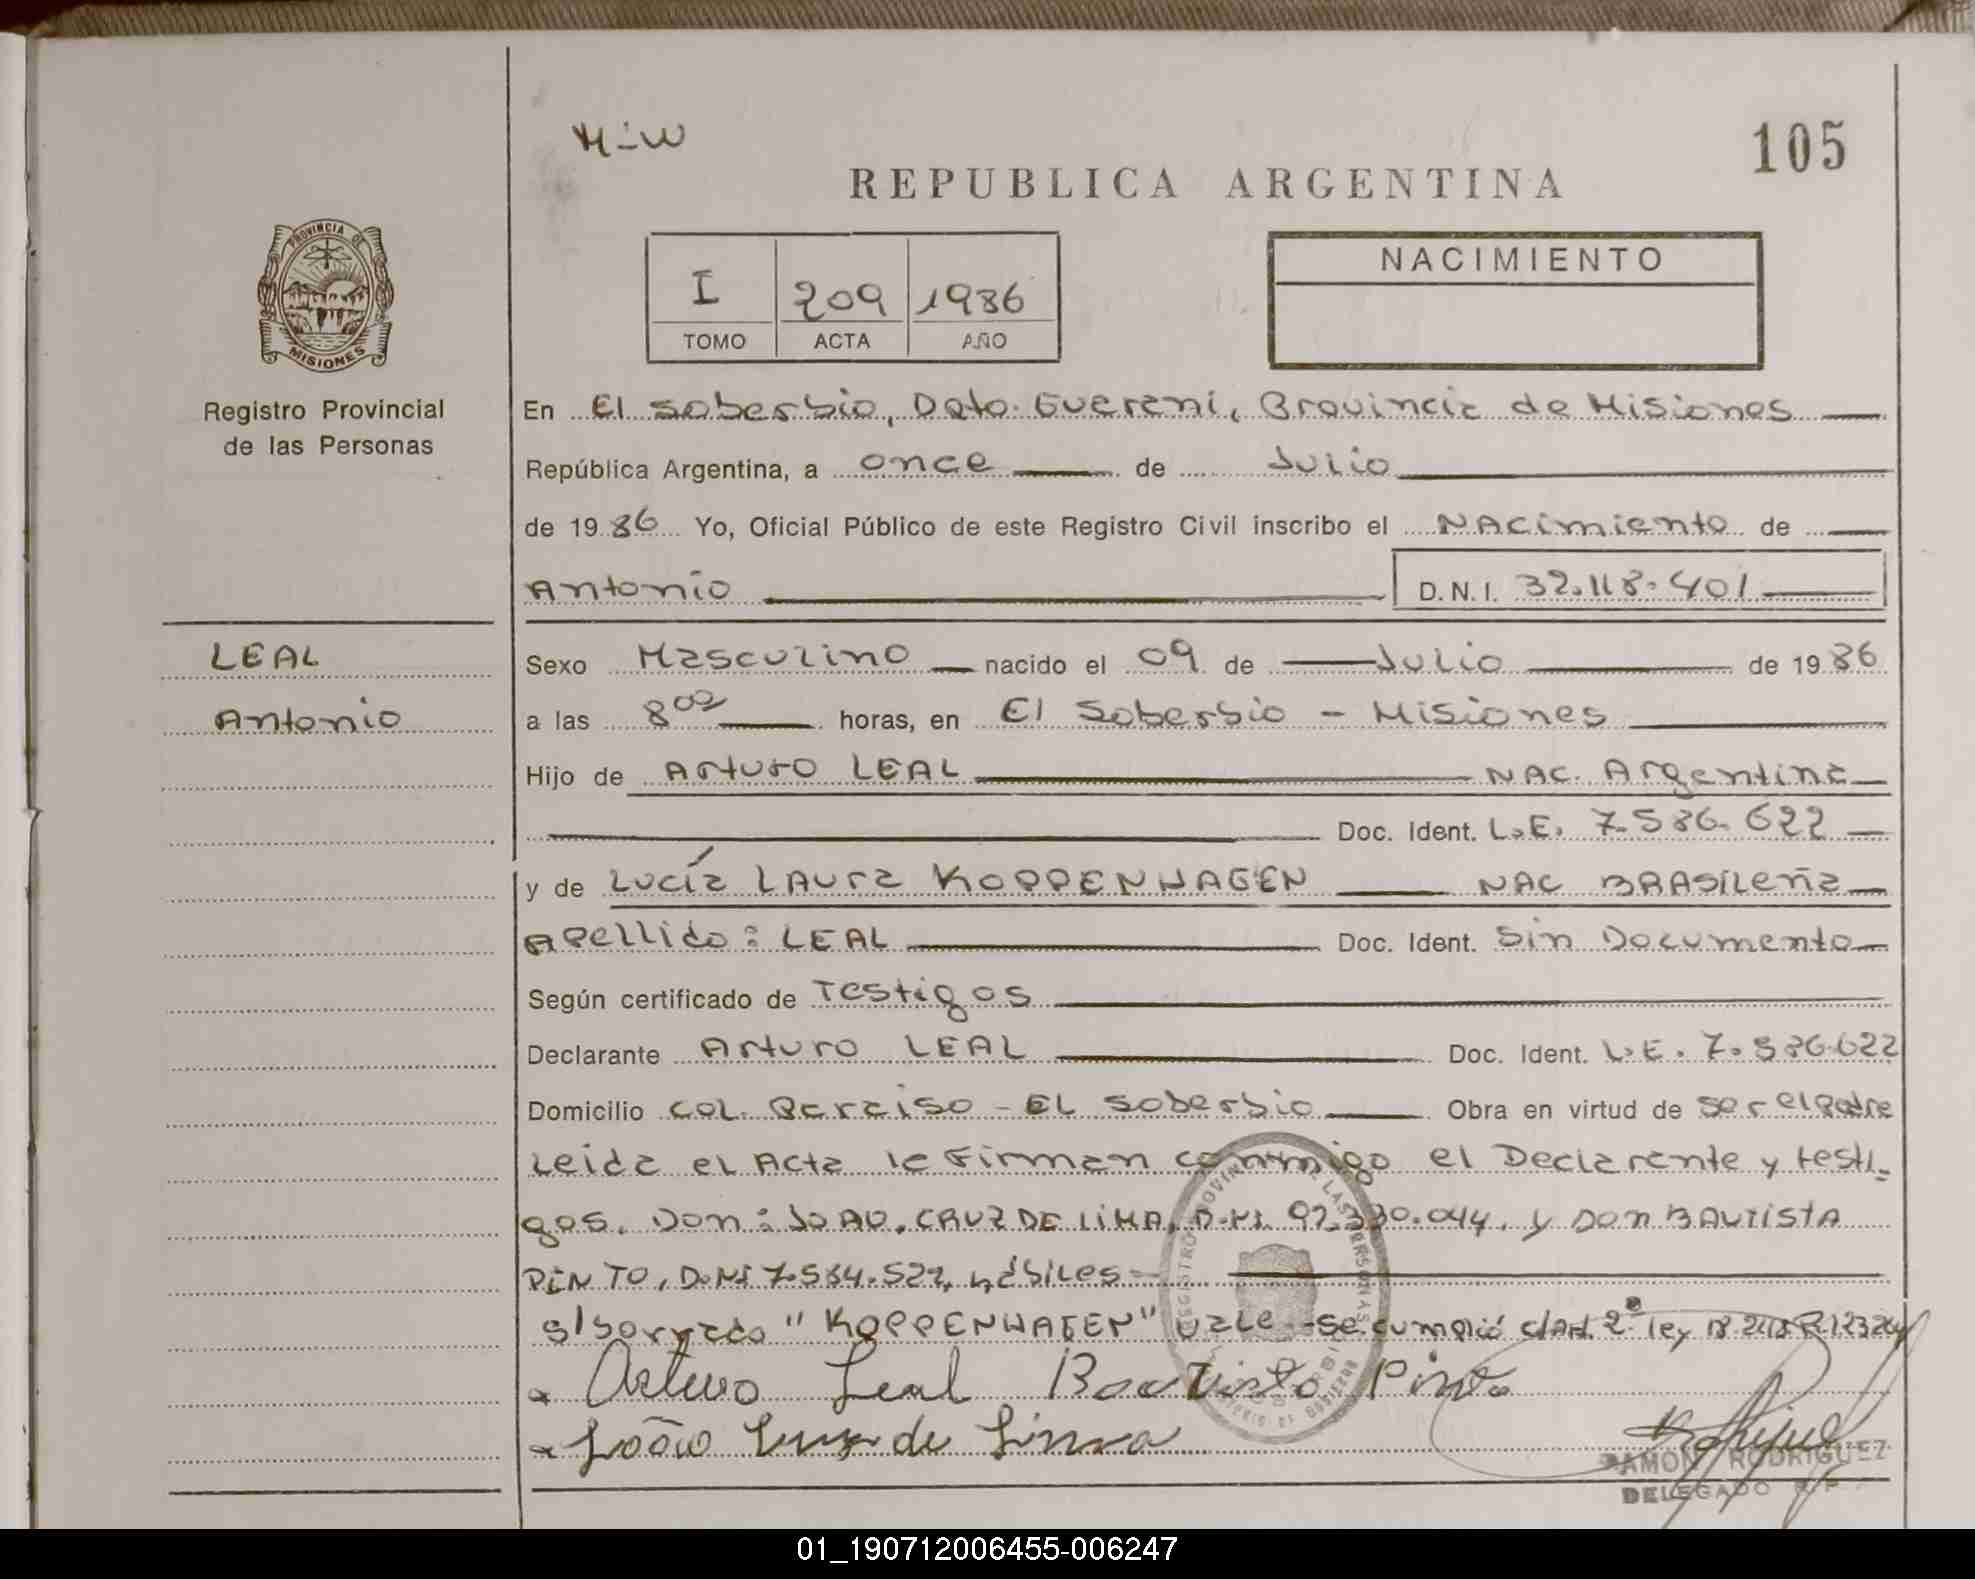 H-W
105
REPUBLICA ARGENTINA
PROVINCIA DE
MISIONES
Registro Provincial
de las Personas
I 209 1986
TOMO ACTA AÑO
NACIMIENTO
En El Soberbio, Dpto. Guarani, Provincia de Misiones
República Argentina, a once de Julio
de 1986 Yo, Oficial Público de este Registro Civil inscribo el Nacimiento de
Antonio D.N.I. 32.118.401
LEAL
Antonio
Sexo Masculino nacido el 09 de Julio de 1986
a las 8 00 horas, en El Soberbio - Misiones
Hijo de Arturo LEAL NAC. Argentina
Doc. Ident. L.E. 7.586.622
y de Lucía LAura KOPPENHAGEN NAC BRASileña
Apellido: LEAL Doc. Ident. Sin Documento
Según certificado de Testigos
Declarante Arturo LEAL Doc. Ident. L.E. 7.586.622
Domicilio COL. Paraiso - EL Soberbio Obra en virtud de ser el padre
Leida el Acta la Firman conmigo el Declarante y testi=
gos. Don: JOAO, CRUZ DE LIMA, D.N.I. 92.330.044, y Don BAUTISTA
PINTO, D.N.I 7.584.527, hábiles
s/borrado "KOPPENHAGEN" Vale - se cumplió Art. 2º ley
Arturo Leal Bautista Pinto
João Cruz de Lima
RAMON RODRIGUEZ
DELEGADO R.P.
01_190712006455-006247